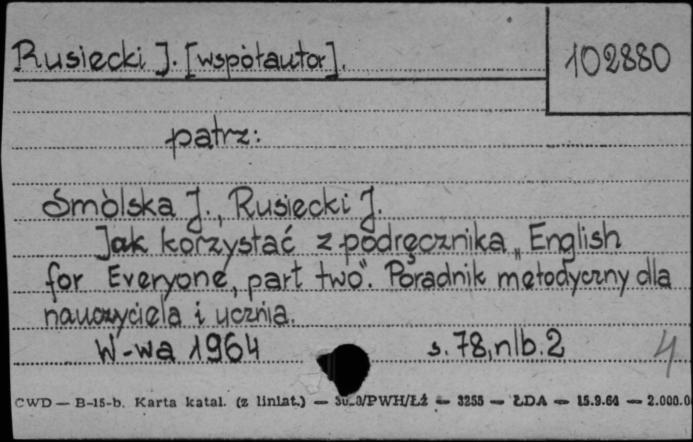 Rusiecki J. [współautor].
102880
patrz:
Smólska J., Rusiecki J.
Jak korzystać z podręcznika „English
for Everyone, part two". Poradnik metodyczny dla
nauczyciela i ucznia.
W-wa 1964 s. 78, nlb. 2
4
CWD — B-15-b. Karta katal. (z liniat.) — /PWH/Łź — 3255 — ŁDA — 15.9.61 — 2.000.0